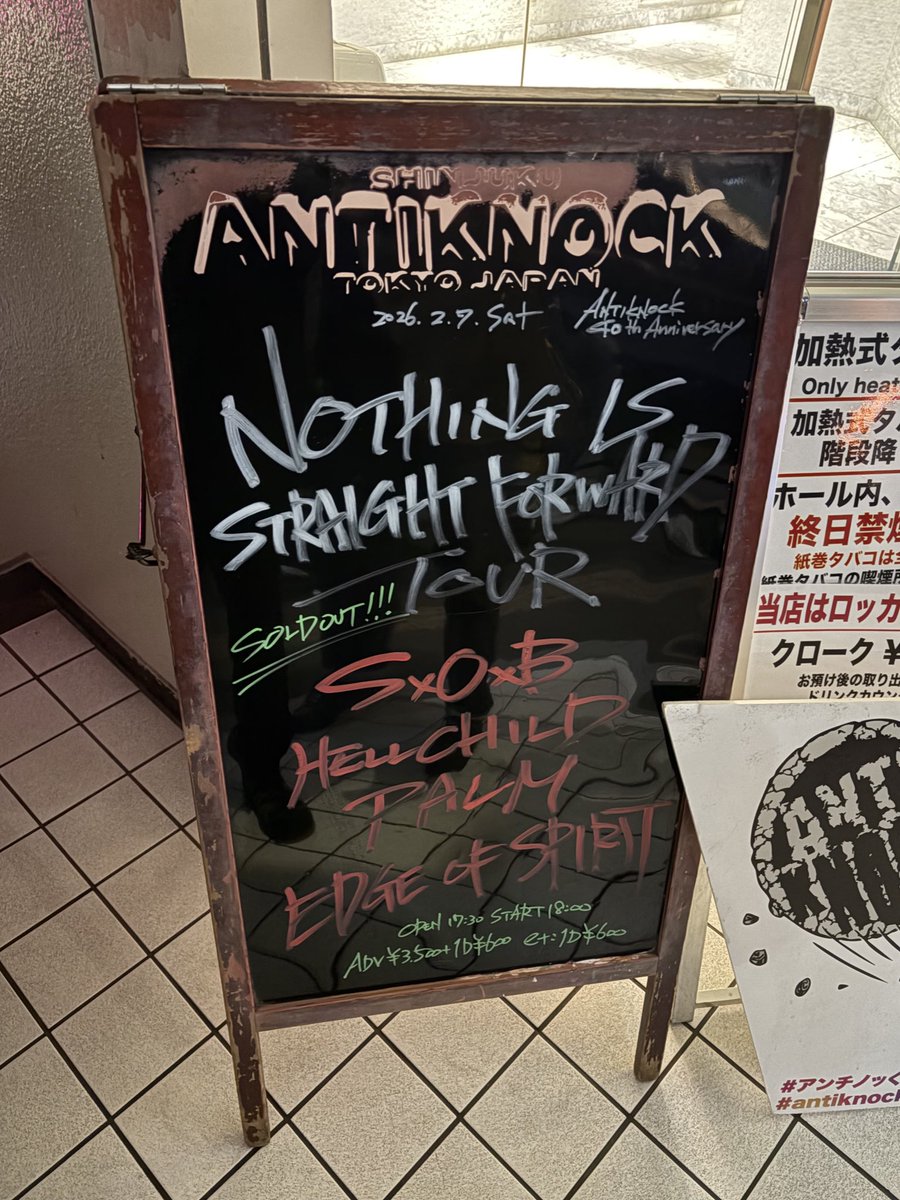 SHINJUKU
ANTIKNOCK
TOKYO JAPAN
2026. 2. 7. Sat
ANTIKNOCK
40th Anniversary
NOTHING IS
STRAIGHT FORWARD
TOUR
SOLD OUT!!!
SxOxB
HELLCHILD
PALM
EDGE OF SPIRIT
OPEN 17:30 START 18:00
ADV ¥3.500+1D¥600 et:1D¥600
加熱式
Only heat
加熱式タバ
階段降
ホール内、
終日禁煙
紙巻タバコは全
紙巻タバコの喫煙所
当店はロッカ
クローク ¥
お預け後の取り出
ドリンクカウン
ANTI
KNO
#アンチノッく
#antiknock